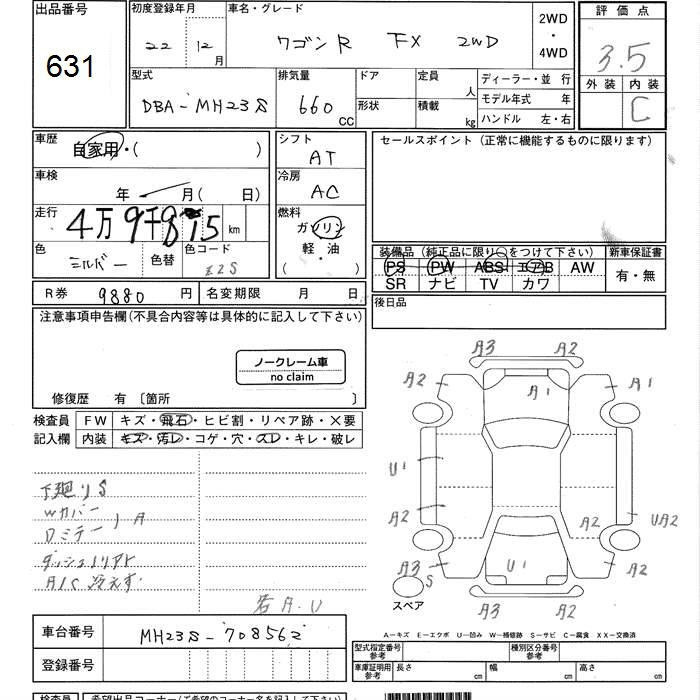 出品番号 初度登録年月 車名・グレード 2WD・4WD 評価点
631 22 12月 ワゴンR FX 2WD 3.5
型式 排気量 ドア 定員 人 ディーラー・並行 外装 内装
DBA-MH23S 660 CC 形状 積載 kg モデル年式 年 C
ハンドル 左・右
車歴 自家用・( ) シフト AT セールスポイント (正常に機能するものに限ります)
車検 年 月( 日) 冷房 AC
走行 4万9千815km 燃料 ガソリン
色 シルバー 色替 色コード Z2S 軽・油 ( )
装備品 (純正品に限り○をつけて下さい) 新車保証書
PS PW ABS エアB AW 有・無
SR ナビ TV カワ
R券 9880円 名変期限 月 日 後日品
注意事項申告欄(不具合内容等は具体的に記入して下さい)
ノークレーム車
no claim
修復歴 有 〔箇所 〕
検査員 FW キズ・飛石・ヒビ割・リペア跡・×要
記入欄 内装 キズ・汚レ・コゲ・穴・スレ・キレ・破レ
A3 A2
A2 A1 A1
U1
A2 A2 UA2
A3 S U1 A2
スペア
A3 A2
下廻りS
Wカバー
Dミラー A
A/C 冷えず
若A.U
A-キズ E-エクボ U-凹み W-補修跡 S-サビ C-腐食 XX-交換済
車台番号 MH23S-708562
型式指定番号 参考 種別区分番号 参考
登録番号
車庫証明用 参考 長さ cm 幅 cm 高さ cm
検査員 希望出品コーナー(ご希望のコーナー名を記入して下さい)